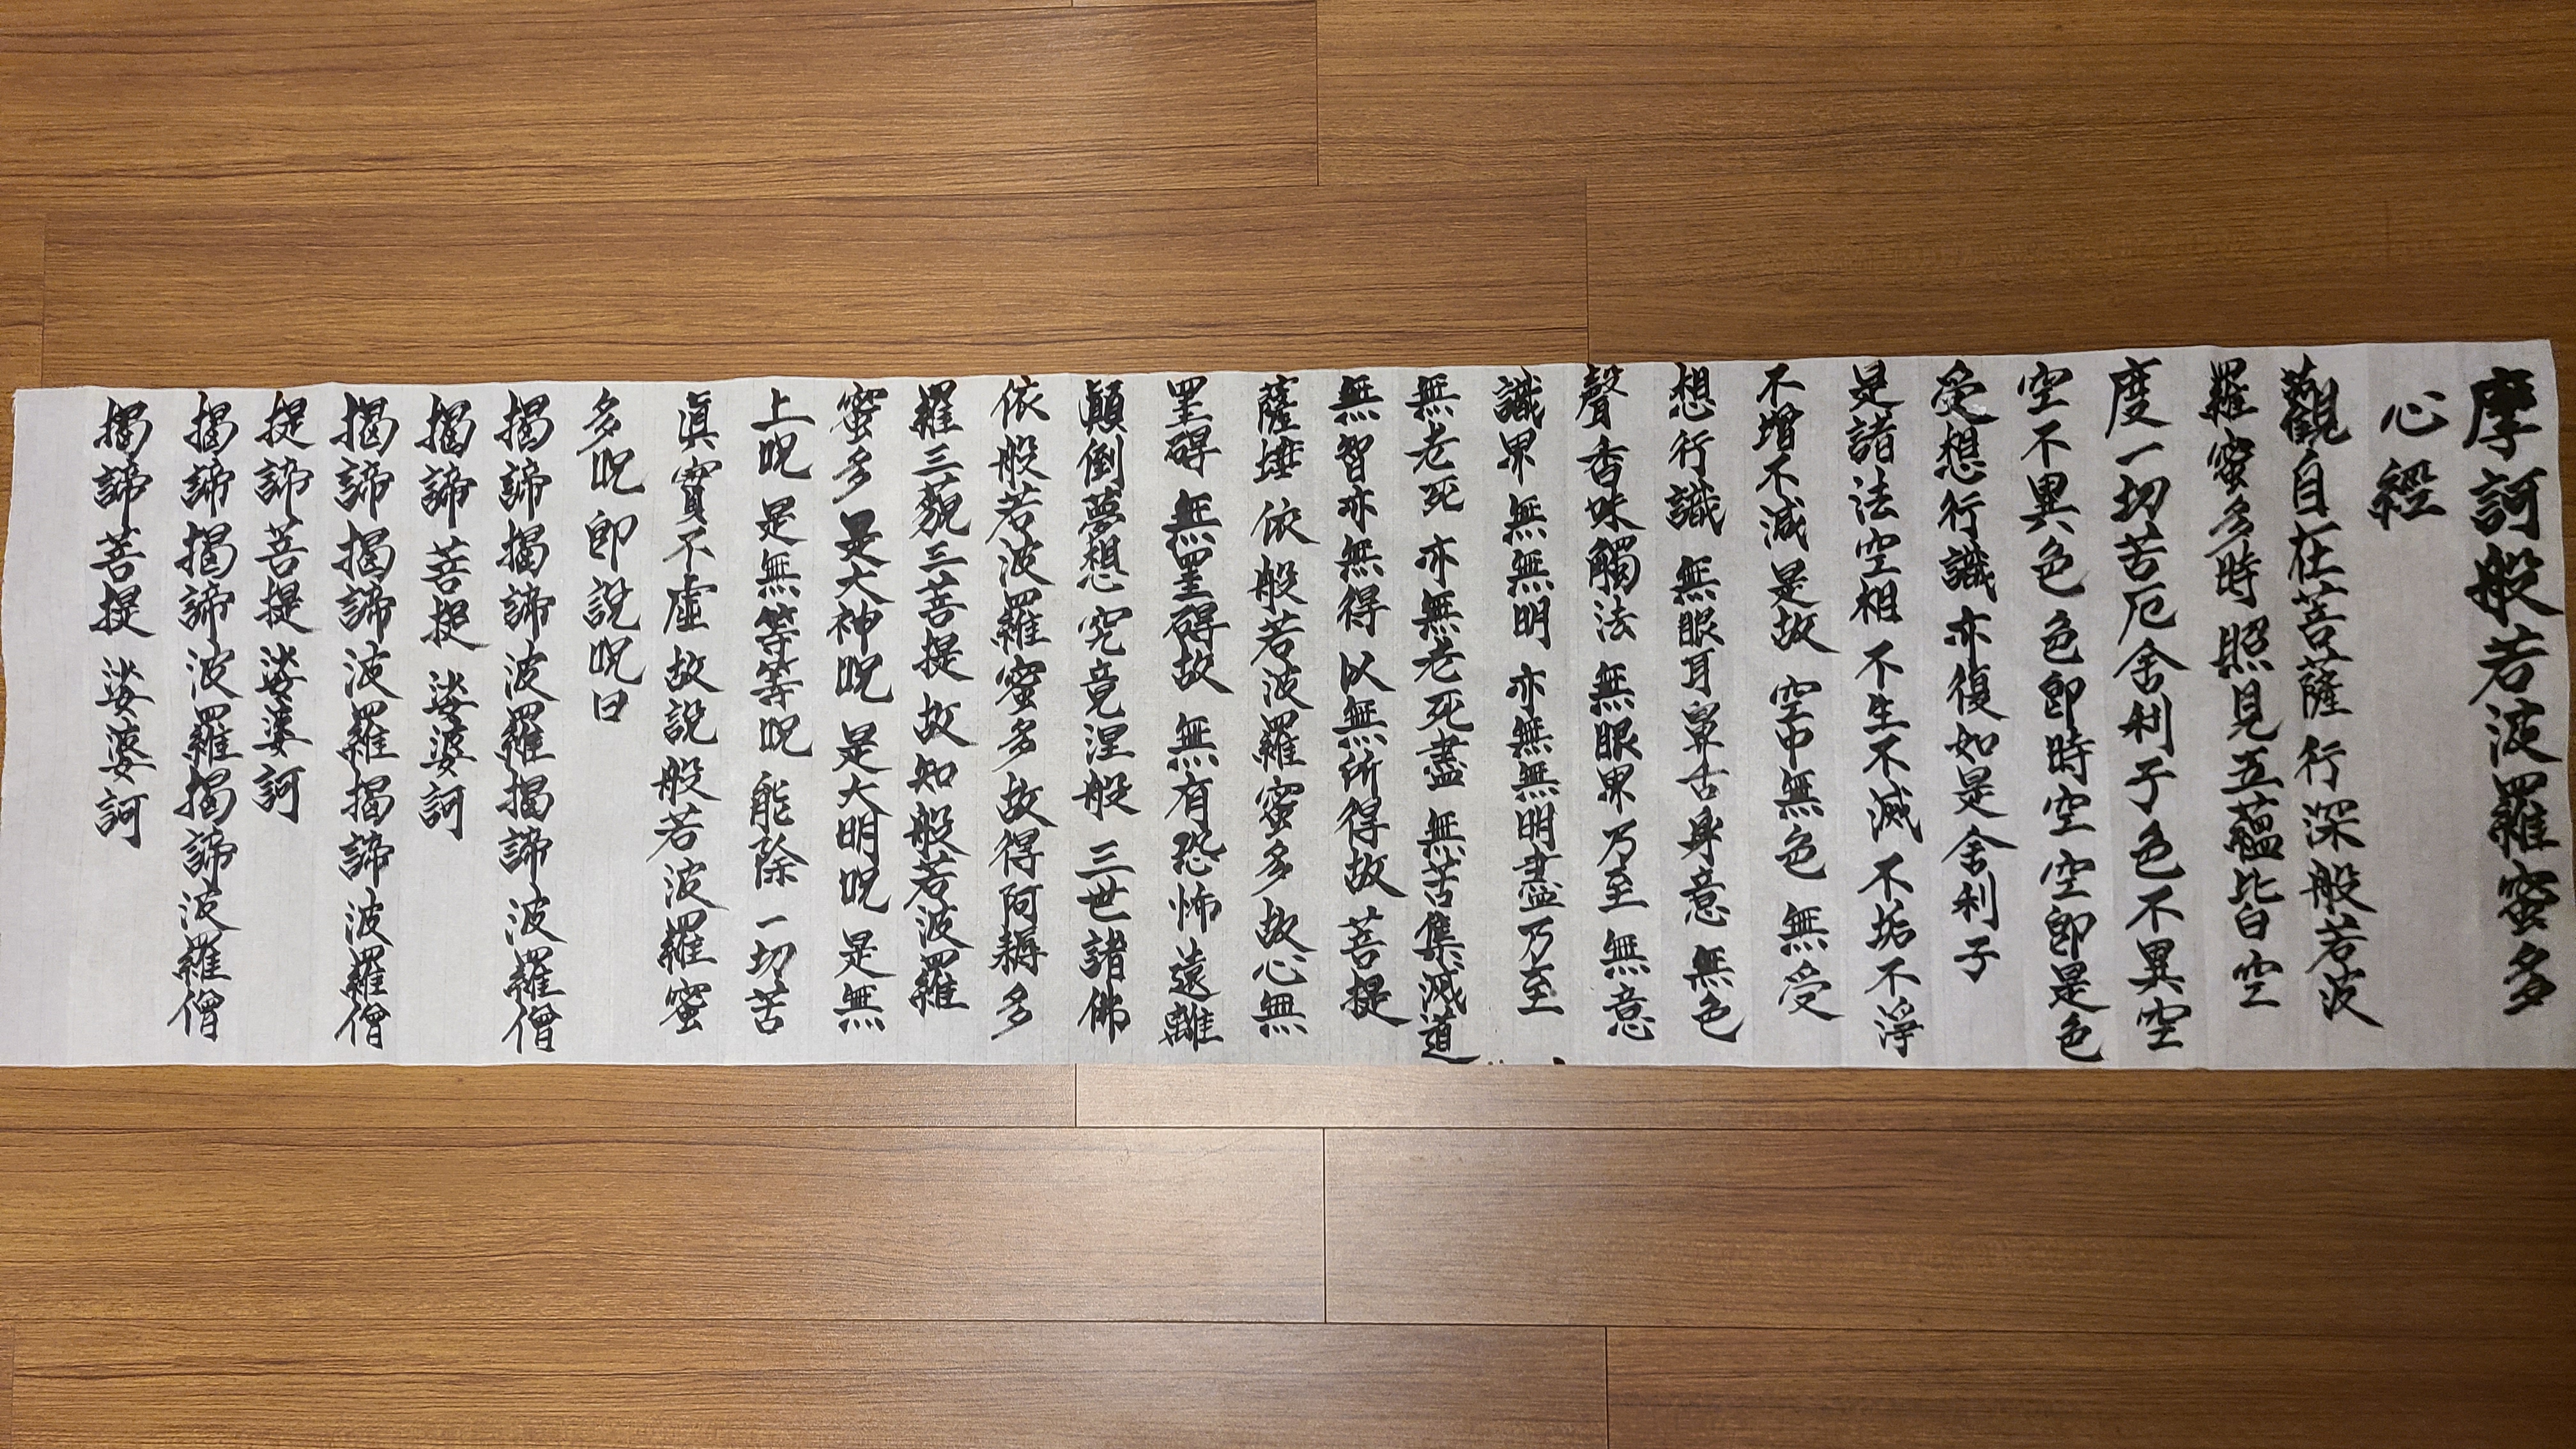 摩訶般若波羅蜜多
心經
觀自在菩薩 行深般若波
羅蜜多時 照見五蘊皆空
度一切苦厄舍利子色不異空
空不異色 色卽時空 空卽是色
受想行識 亦復如是 舍利子
是諸法空相 不生不滅 不垢不淨
不增不減 是故 空中無色 無受
想行識 無眼耳鼻舌身意 無色
聲香味觸法 無眼界 乃至 無意
識界 無無明 亦無無明盡乃至
無老死 亦無老死盡 無苦集滅道
無智亦無得 以無所得故 菩提
薩埵 依般若波羅蜜多故心無
罣碍 無罣碍故 無有恐怖 遠離
顚倒夢想 究竟涅般 三世諸佛
依般若波羅蜜多故得阿耨多
羅三藐三菩提 故知般若波羅
蜜多 是大神呪 是大明呪 是無
上呪 是無等等呪 能除 一切苦
眞實不虛 故說 般若波羅蜜
多呪 卽說呪曰
揭諦 揭諦 波羅揭諦 波羅僧
揭諦 菩提 娑婆訶
揭諦 揭諦 波羅揭諦 波羅僧
提諦 菩提 娑婆訶
揭諦 揭諦 波羅揭諦 波羅僧
揭諦 菩提 娑婆訶